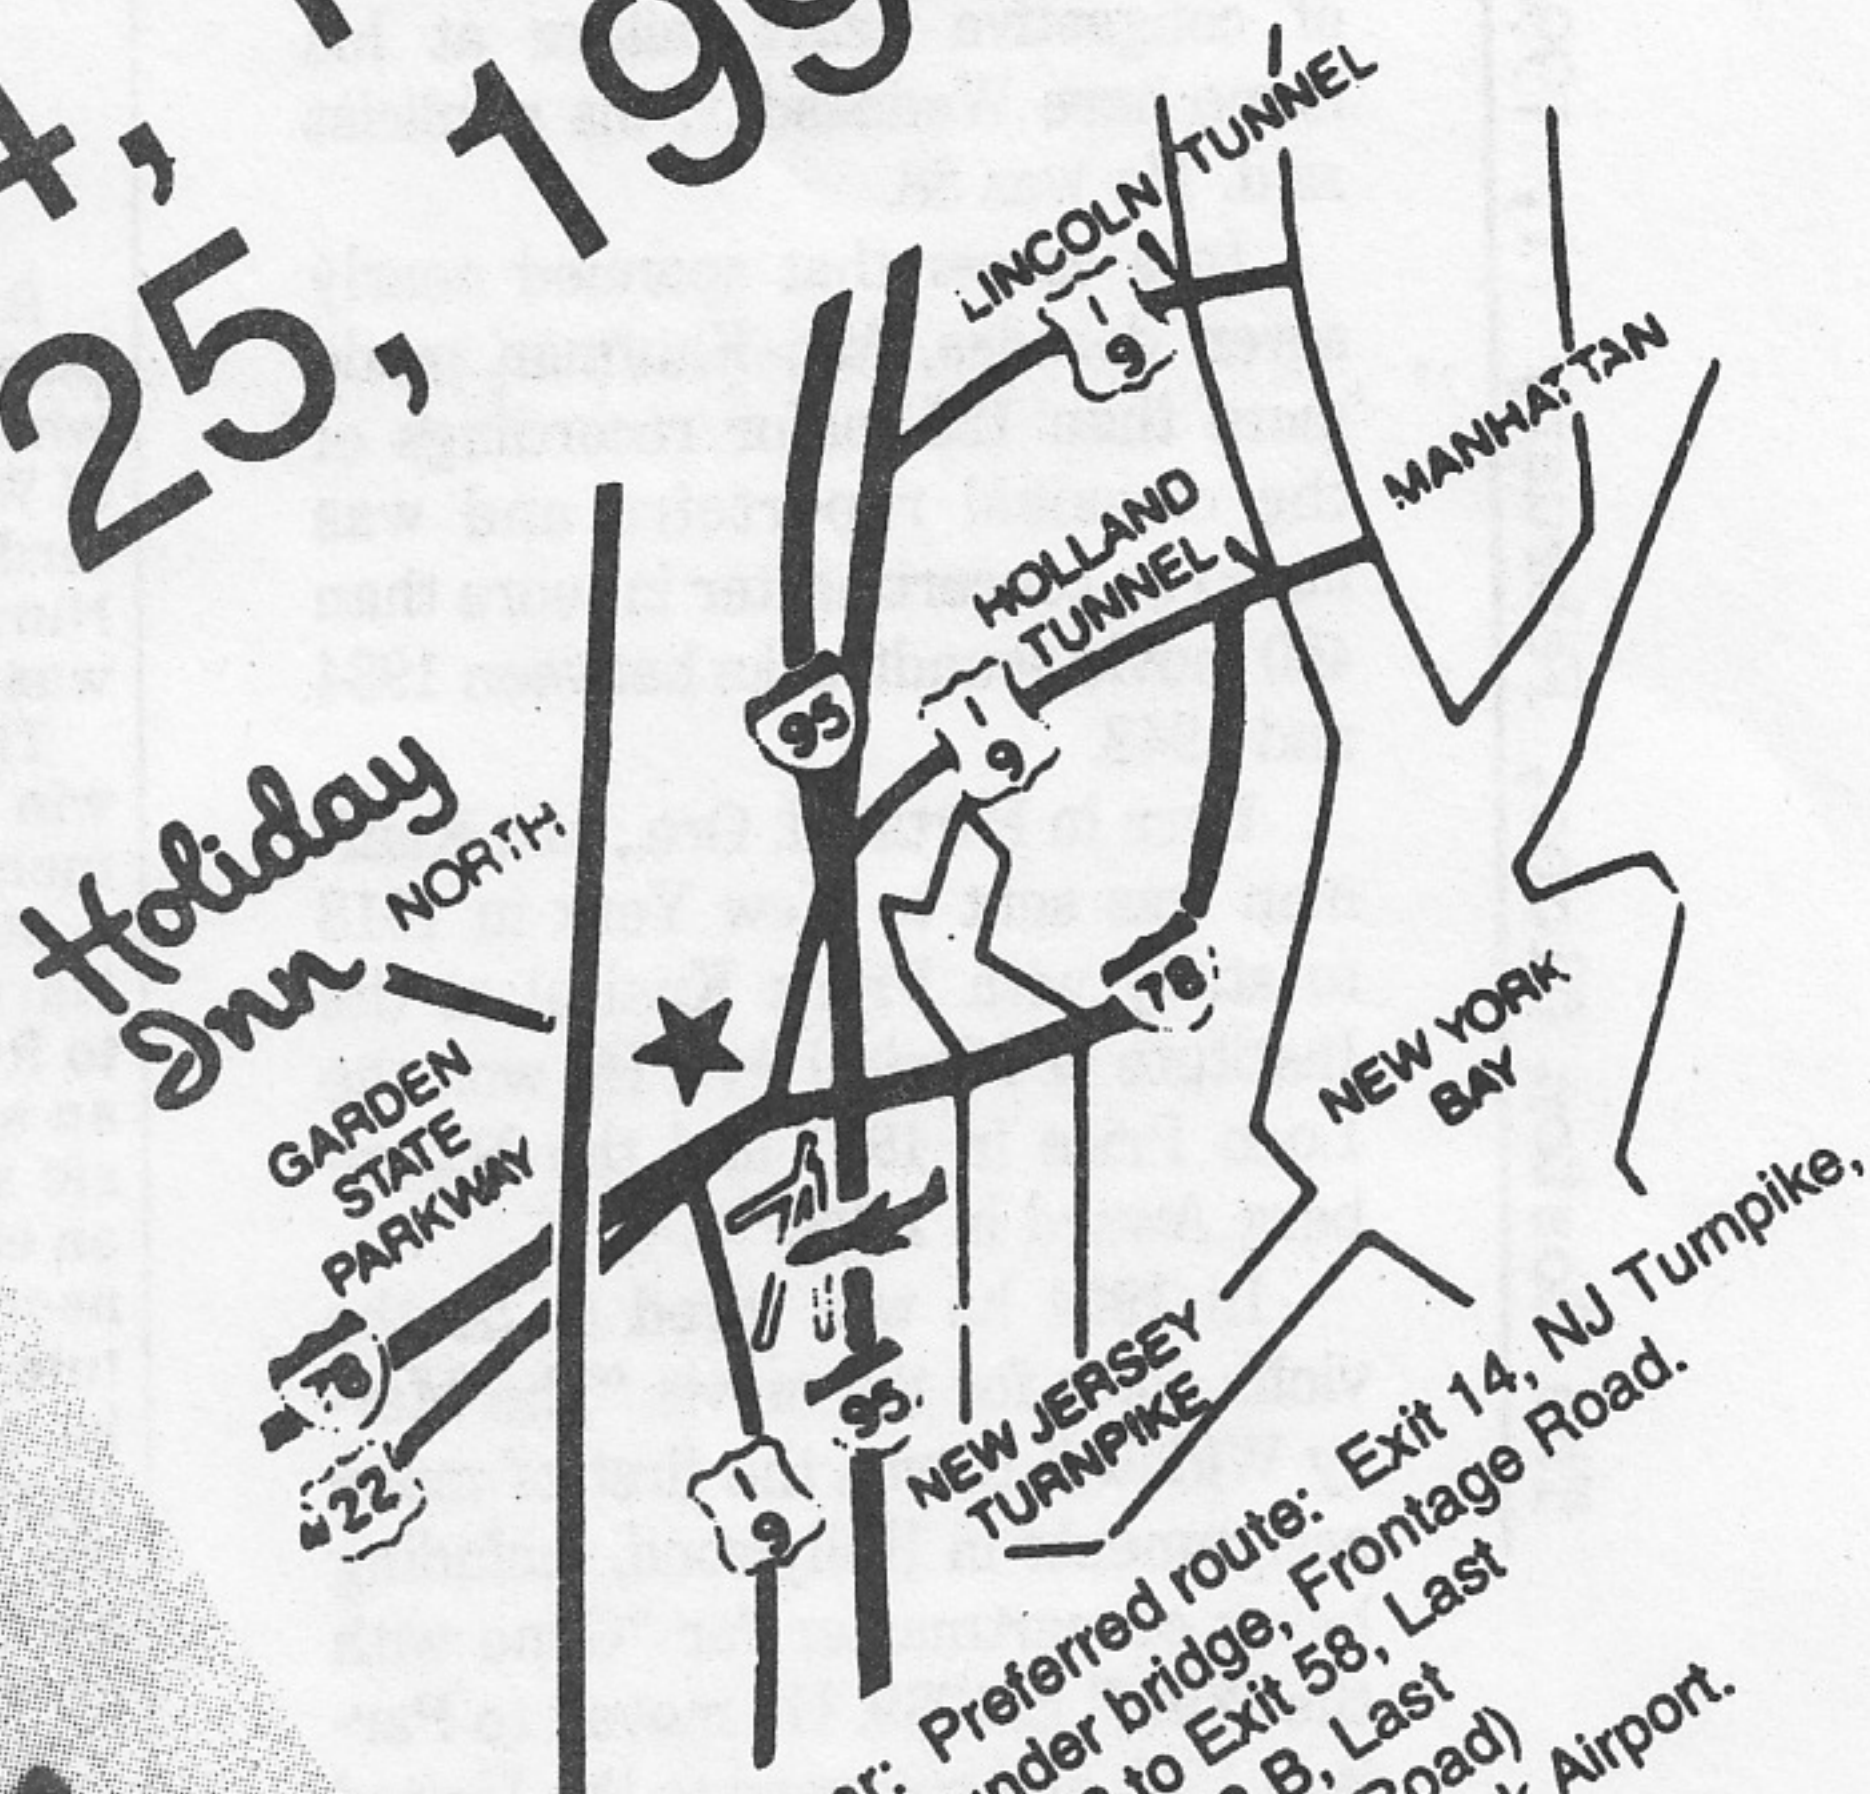 4,
25, 199
LINCOLN TUNNEL
1
9
MANHATTAN
HOLLAND
TUNNEL
95
1
9
Holiday
Inn
NORTH
78
GARDEN
STATE
PARKWAY
NEW YORK
BAY
78
22
95
1
9
NEW JERSEY
TURNPIKE
Preferred route: Exit 14, NJ Turnpike,
under bridge, Frontage Road.
to Exit 58, Last
B, Last
Road)
Airport.